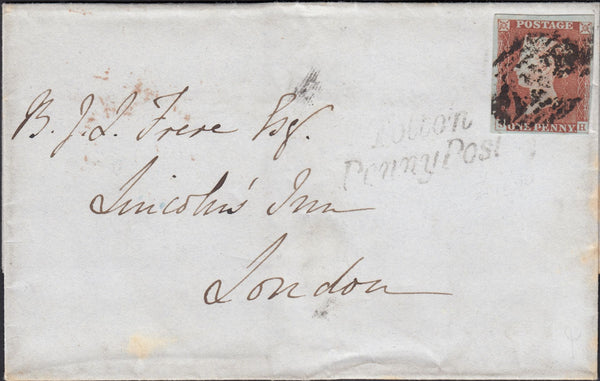 POSTAGE
ONE PENNY
H
Potton
Penny Post
B. J. L. Frere Esq.
Lincoln's Inn
London